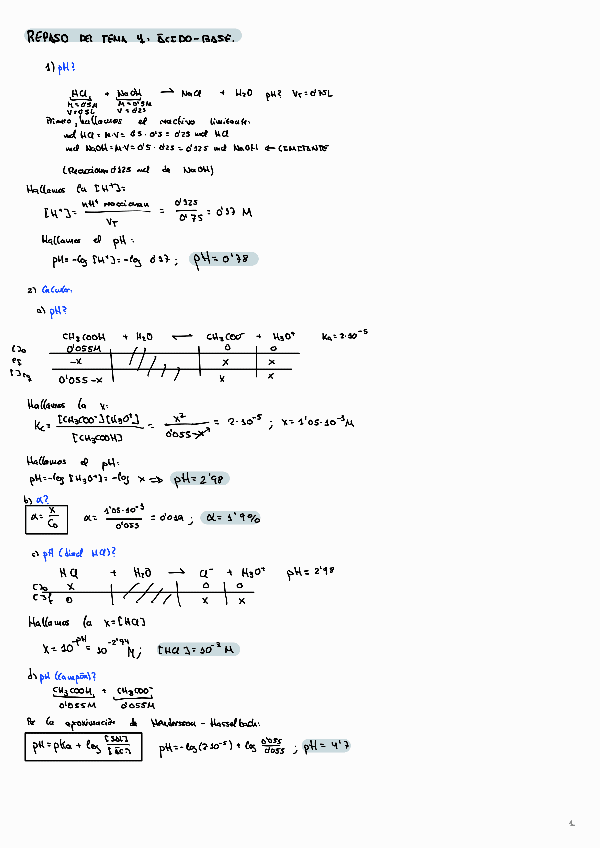 REPASO DEL TEMA 4: ÁCIDO-BASE.
1) pH?
HCl + NaOH → NaCl + H2O pH? VT = 0'75L
M = 0'5M M = 0'5M
V = 0'5L V = 0'25
Primero, hallamos el reactivo limitante:
mol HCl = M·V = 0'5 · 0'5 = 0'25 mol HCl
mol NaOH = M·V = 0'5 · 0'25 = 0'125 mol NaOH ← LIMITANTE
(Reaccionan 0'125 mol de NaOH)
Hallamos la [H+]:
[H+] = nH+ reaccionan / VT = 0'125 / 0'75 = 0'17 M
Hallamos el pH:
pH = -log [H+] = -log 0'17 ; pH = 0'78
2) Calcular:
a) pH?
CH3COOH + H2O ⟷ CH3COO- + H3O+ Ka = 2·10^-5
[ ]o 0'055M 0 0
-x x x
[ ]eq 0'055-x x x
Hallamos la x:
Kc = [CH3COO-][H3O+] / [CH3COOH] = x² / 0'055-x = 2·10^-5 ; x = 1'05·10^-3 M
Hallamos el pH:
pH = -log [H3O+] = -log x ⇒ pH = 2'98
b) α?
α = x / Co α = 1'05·10^-3 / 0'055 = 0'019 ; α = 1'9%
c) pH (disol HCl)?
HCl + H2O → Cl- + H3O+ pH = 2'98
[ ]o x 0 0
[ ]f 0 x x
Hallamos la x = [HCl]
x = 10^-pH = 10^-2'94 M ; [HCl] = 10^-3 M
d) pH (tampón)?
CH3COOH + CH3COO-
0'055M 0'055M
Por la aproximación de Henderson - Hasselbach:
pH = pKa + log [SAL] / [ÁC] pH = -log (2·10^-5) + log 0'055 / 0'055 ; pH = 4'7
1